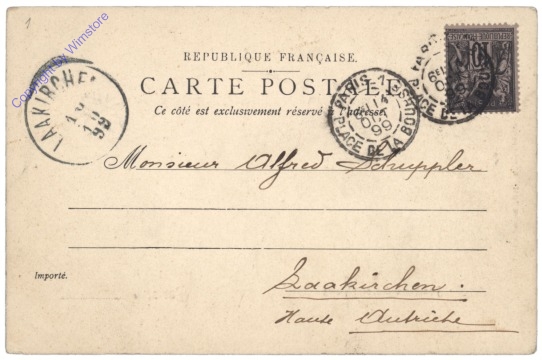 1
Copyright by Wimstore
REPUBLIQUE FRANÇAISE.
CARTE POSTALE
Ce côté est exclusivement réservé à l'adresse.
LAAKIRCHEN
99
PARIS
PLACE DE LA BOURSE
99
PLACE DE LA BOURSE
10
Monsieur Alfred Schuppler
Importé.
Laakirchen.
Haute Autriche